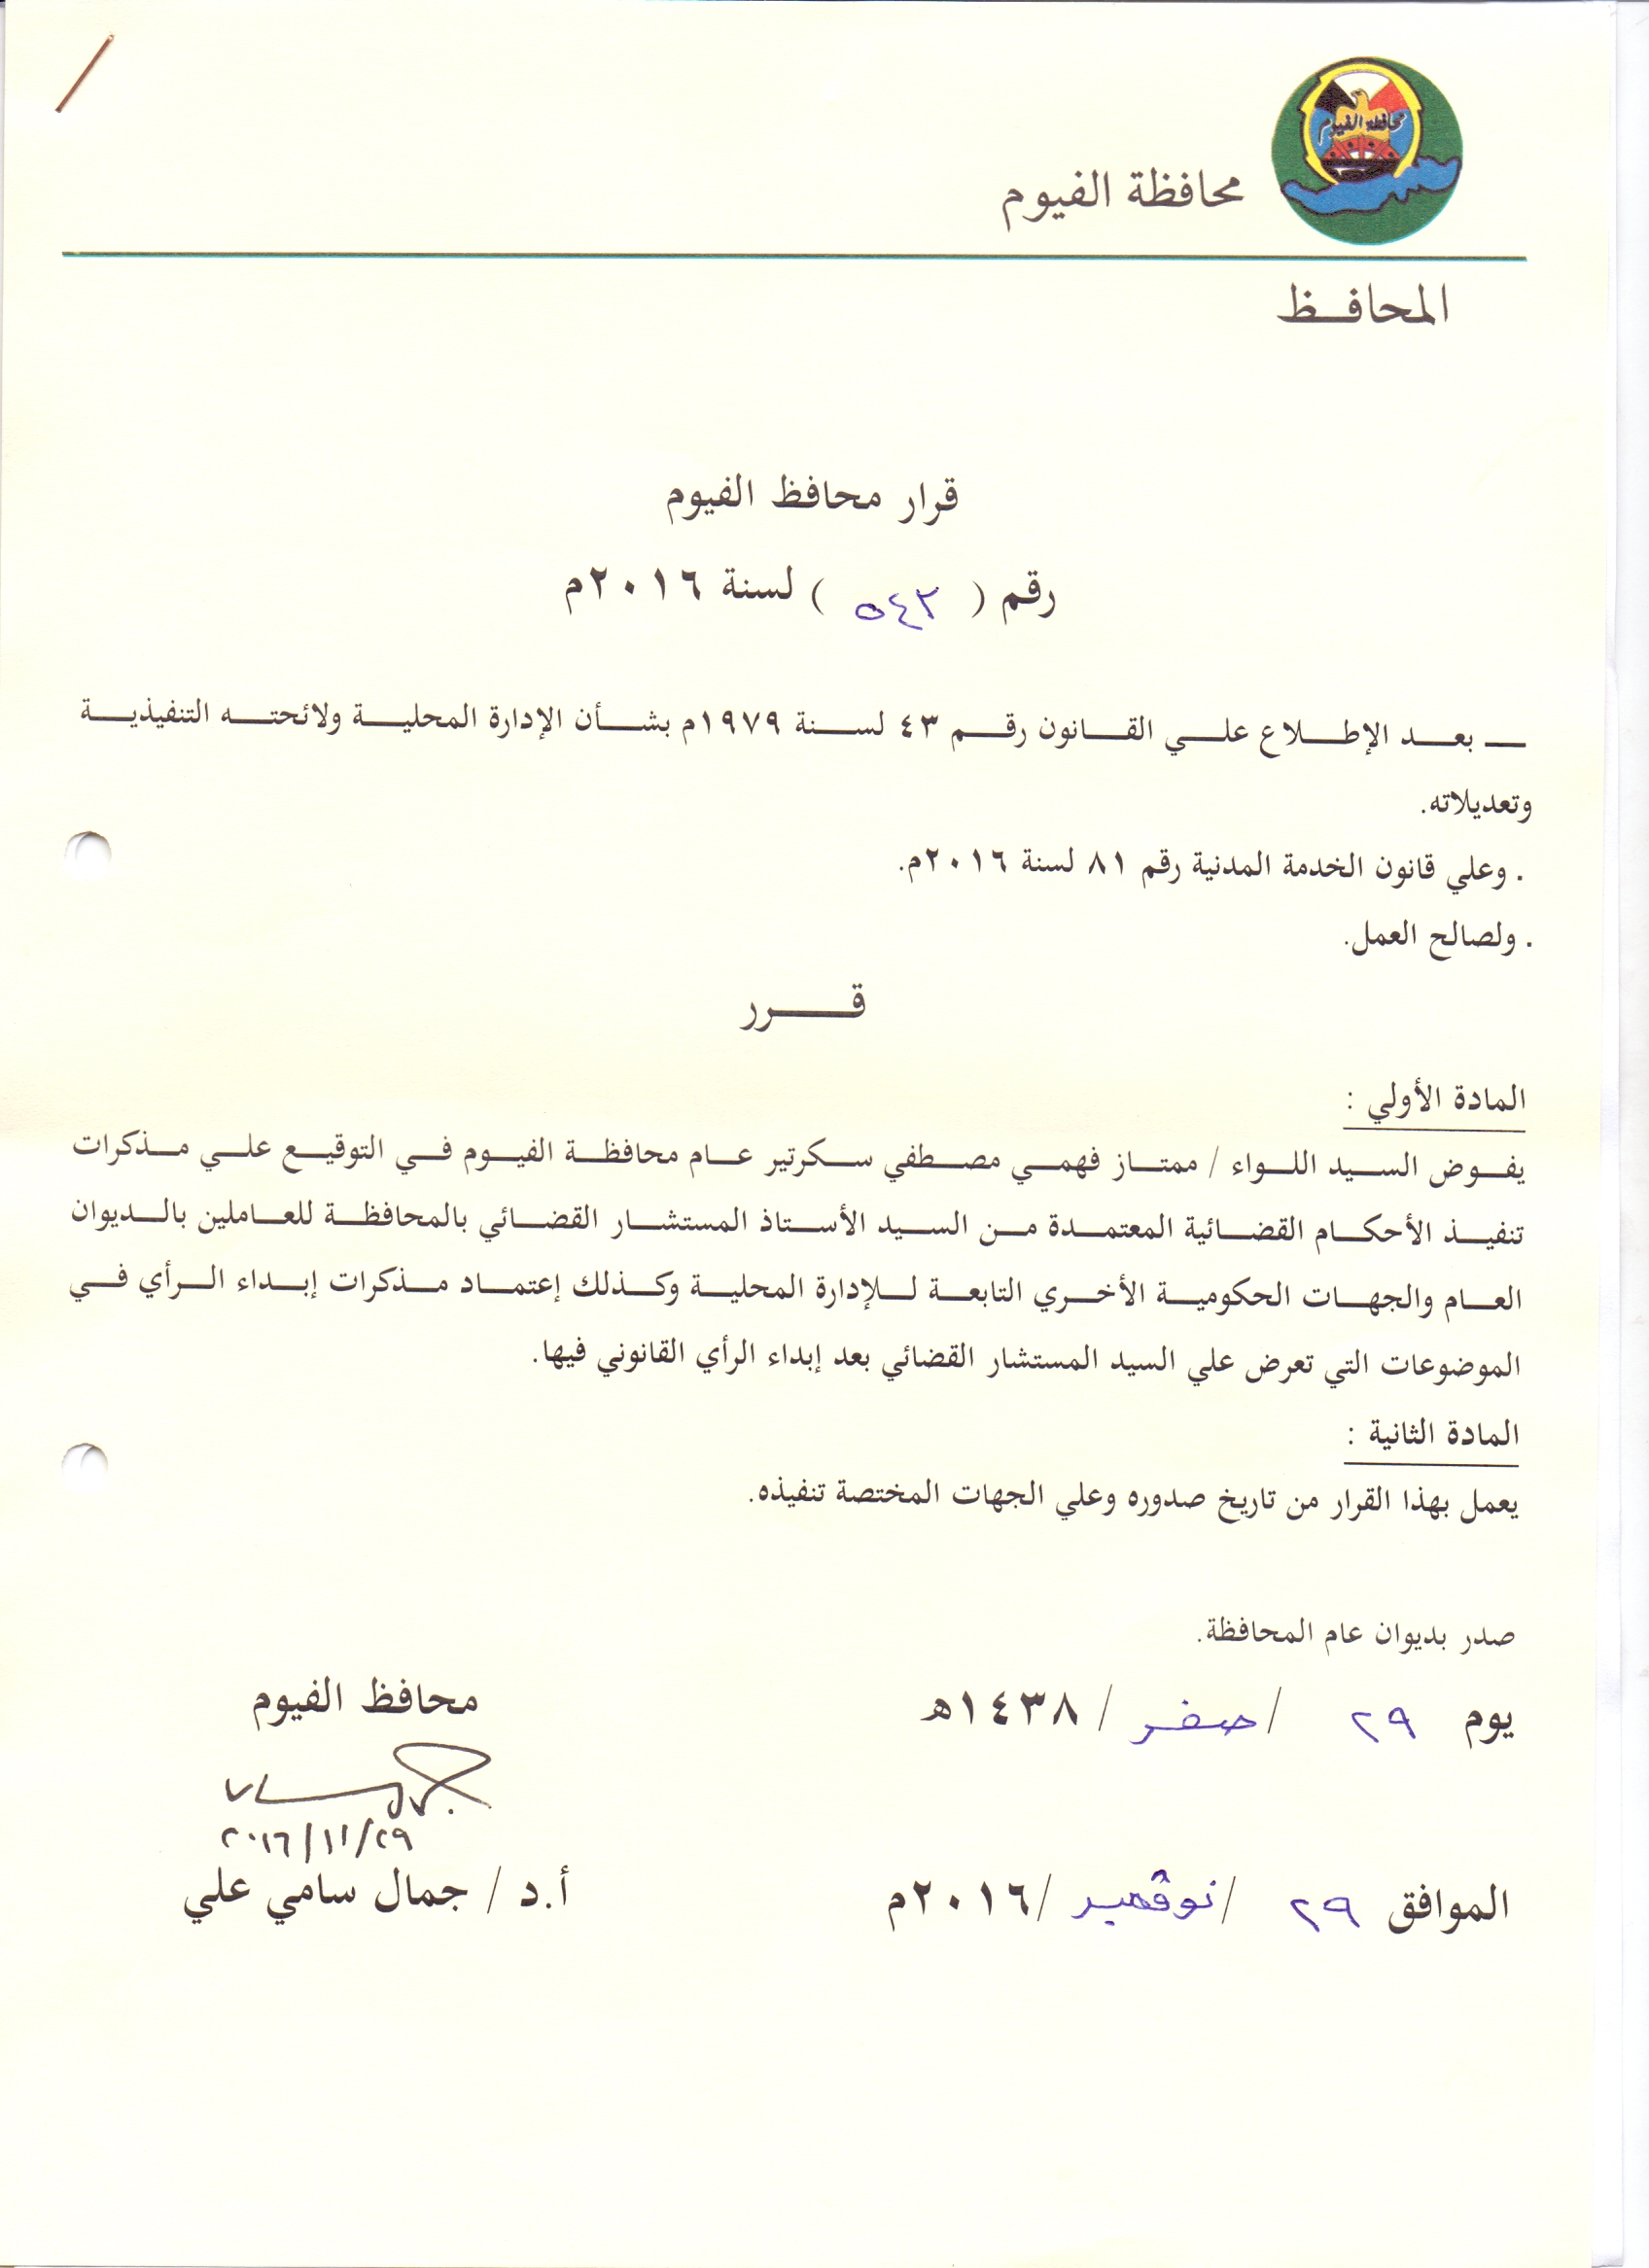 محافظة الفيوم
محافظة الفيوم
المحافظ
قرار محافظ الفيوم
رقم ( ٥٤٢ ) لسنة ٢٠١٦م
ــ بعد الإطلاع علي القانون رقم ٤٣ لسنة ١٩٧٩م بشأن الإدارة المحلية ولائحته التنفيذية
وتعديلاته.
. وعلي قانون الخدمة المدنية رقم ٨١ لسنة ٢٠١٦م.
. ولصالح العمل.
قرر
المادة الأولي :
يفوض السيد اللواء / ممتاز فهمي مصطفي سكرتير عام محافظة الفيوم في التوقيع علي مذكرات
تنفيذ الأحكام القضائية المعتمدة من السيد الأستاذ المستشار القضائي بالمحافظة للعاملين بالديوان
العام والجهات الحكومية الأخري التابعة للإدارة المحلية وكذلك إعتماد مذكرات إبداء الرأي في
الموضوعات التي تعرض علي السيد المستشار القضائي بعد إبداء الرأي القانوني فيها.
المادة الثانية :
يعمل بهذا القرار من تاريخ صدوره وعلي الجهات المختصة تنفيذه.
صدر بديوان عام المحافظة.
يوم ٢٩ / صفر / ١٤٣٨هـ
الموافق ٢٩ / نوفمبر / ٢٠١٦م
محافظ الفيوم
٢٠١٦/١١/٢٩
أ.د / جمال سامي علي